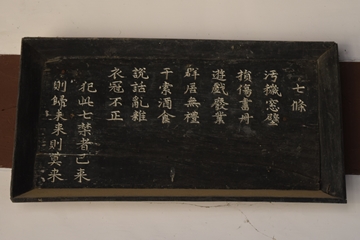 七條
汚穢窓壁
損傷書冊
遊戲廢業
群居無禮
干索酒食
說話亂雜
衣冠不正
犯此七禁者已來
則歸未來則莫來